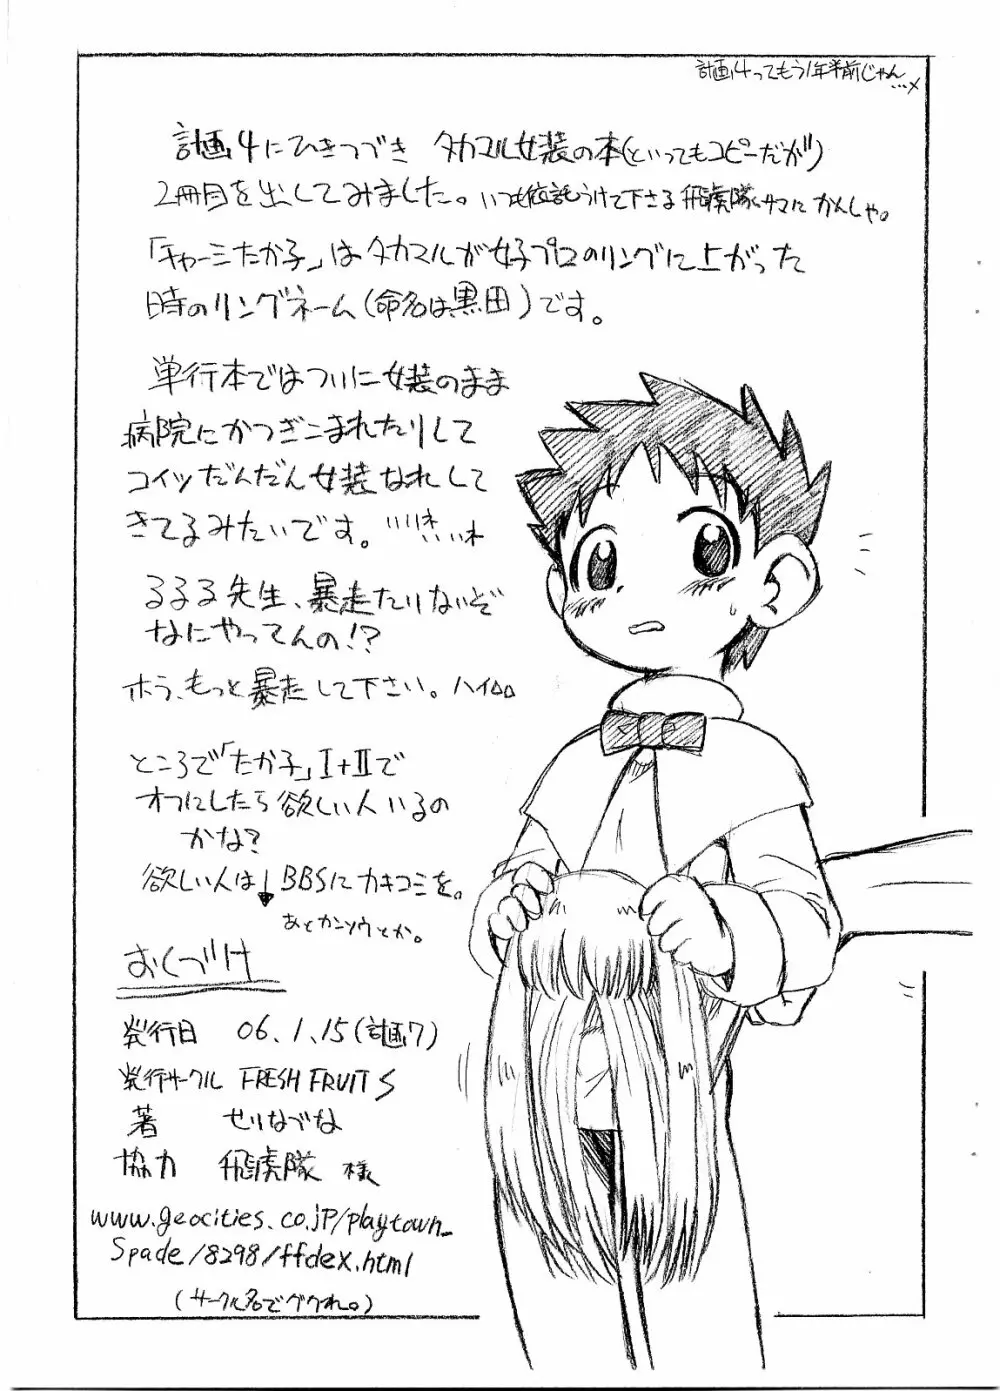 計画4ってもう1年半前じゃん…×
計画4にひきつづき タカマル女装の本(といってもコピーだが)
2冊目を出してみました。いつも依託うけて下さる飛虎隊サマにかんしゃ。
「チャーミたか子」はタカマルが女子プロのリングに上がった
時のリングネーム(命名は黒田)です。
単行本ではついに女装のまま
病院にかつぎこまれたりして
コイツだんだん女装なれして
きてるみたいです。
るるる先生、暴走たりないぞ
なにやってんの!?
ホラ、もっと暴走して下さい。ハイ
ところで「たか子」I+IIで
オフにしたら欲しい人いるの
かな?
欲しい人は↓BBSにカキコミを。
あとカンソウとか。
おくづけ
発行日 06.1.15(計画7)
発行サークル FRESH FRUITS
著 せりなずな
協力 飛虎隊 様
www.geocities.co.jp/playtown_
Spade/8298/ffdex.html
(サークル名でググれ。)